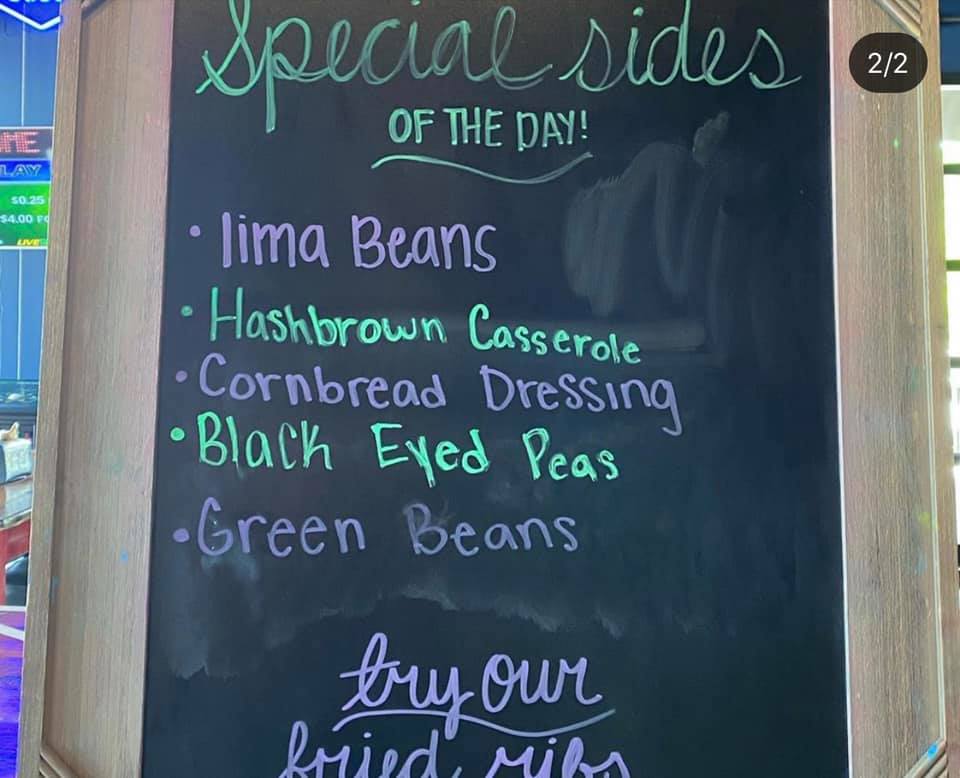 2/2
Special sides
OF THE DAY!
• lima Beans
• Hashbrown Casserole
• Cornbread Dressing
• Black Eyed Peas
• Green Beans
try our
fried ribs
LAY
$0.25
$4.00
LIVE